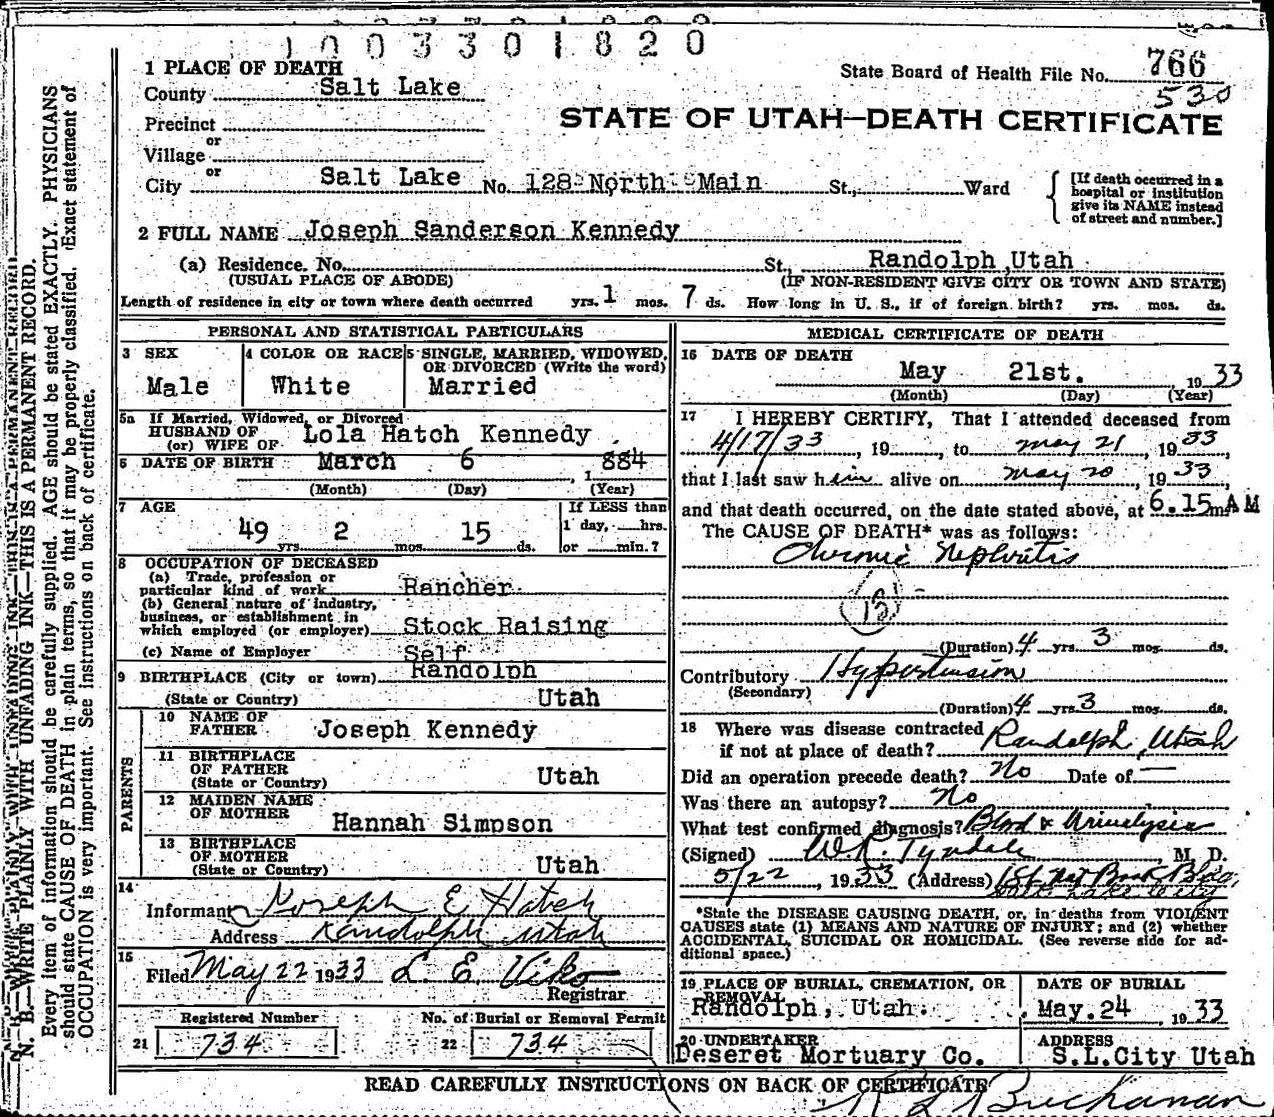 1003301820
1 PLACE OF DEATH
State Board of Health File No. 766
530
County Salt Lake
STATE OF UTAH—DEATH CERTIFICATE
Precinct
or
Village
or
City Salt Lake No. 128 North Main St., Ward
[If death occurred in a hospital or institution give its NAME instead of street and number.]
2 FULL NAME Joseph Sanderson Kennedy
(a) Residence. No. St., Randolph, Utah
(USUAL PLACE OF ABODE) (IF NON-RESIDENT GIVE CITY OR TOWN AND STATE)
Length of residence in city or town where death occurred yrs. 1 mos. 7 ds. How long in U. S., if of foreign birth? yrs. mos. ds.
PERSONAL AND STATISTICAL PARTICULARS
3 SEX
Male
4 COLOR OR RACE
White
5 SINGLE, MARRIED, WIDOWED, OR DIVORCED (Write the word)
Married
5a If Married, Widowed, or Divorced
HUSBAND OF
(or) WIFE OF Lola Hatch Kennedy
6 DATE OF BIRTH March 6, 1884
(Month) (Day) (Year)
7 AGE
49 yrs. 2 mos. 15 ds.
If LESS than
1 day, hrs.
or min.?
8 OCCUPATION OF DECEASED
(a) Trade, profession or
particular kind of work Rancher
(b) General nature of industry,
business, or establishment in
which employed (or employer) Stock Raising
(c) Name of Employer Self
9 BIRTHPLACE (City or town) Randolph
(State or Country) Utah
PARENTS
10 NAME OF
FATHER Joseph Kennedy
11 BIRTHPLACE
OF FATHER
(State or Country) Utah
12 MAIDEN NAME
OF MOTHER
Hannah Simpson
13 BIRTHPLACE
OF MOTHER
(State or Country) Utah
14
Informant Joseph E Hatch
Address Randolph Utah
15
Filed May 22 1933 L. E. Viko
Registrar
Registered Number No. of Burial or Removal Permit
21 734 22 734
MEDICAL CERTIFICATE OF DEATH
16 DATE OF DEATH
May 21st. 1933
(Month) (Day) (Year)
17 I HEREBY CERTIFY, That I attended deceased from
4/17/33, 19 , to May 21, 1933,
that I last saw him alive on May 20, 1933,
and that death occurred, on the date stated above, at 6.15 m. AM
The CAUSE OF DEATH* was as follows:
Chronic Nephritis
(Duration) 4 yrs. 3 mos. ds.
Contributory Hypertension
(Secondary)
(Duration) 4 yrs. 3 mos. ds.
18 Where was disease contracted
if not at place of death? Randolph, Utah
Did an operation precede death? No Date of —
Was there an autopsy? No
What test confirmed diagnosis? Blood & Urinalysis
(Signed) W. R. Tyndale M. D.
5/22, 1933 (Address) 1st Nat Bank Bldg,
Salt Lake City
*State the DISEASE CAUSING DEATH, or, in deaths from VIOLENT
CAUSES state (1) MEANS AND NATURE OF INJURY; and (2) whether
ACCIDENTAL, SUICIDAL OR HOMICIDAL. (See reverse side for ad-
ditional space.)
19 PLACE OF BURIAL, CREMATION, OR
REMOVAL
Randolph, Utah.
DATE OF BURIAL
May. 24, 1933
20 UNDERTAKER
Deseret Mortuary Co.
ADDRESS
S.L.City Utah
READ CAREFULLY INSTRUCTIONS ON BACK OF CERTIFICATE
Buchanan
N. B.—WRITE PLAINLY WITH UNFADING INK—THIS IS A PERMANENT RECORD.
Every item of information should be carefully supplied. AGE should be stated EXACTLY. PHYSICIANS
should state CAUSE OF DEATH in plain terms, so that it may be properly classified. Exact statement of
OCCUPATION is very important. See instructions on back of certificate.